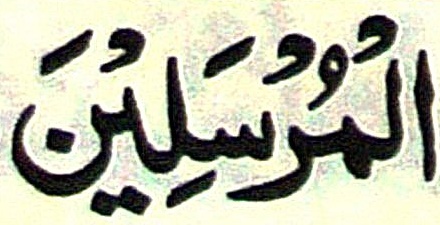 الْمُرْسَلِيْنَ